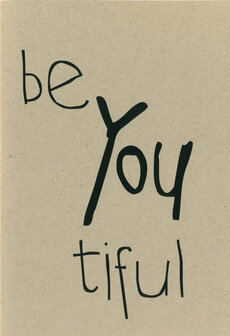 be
You
tiful